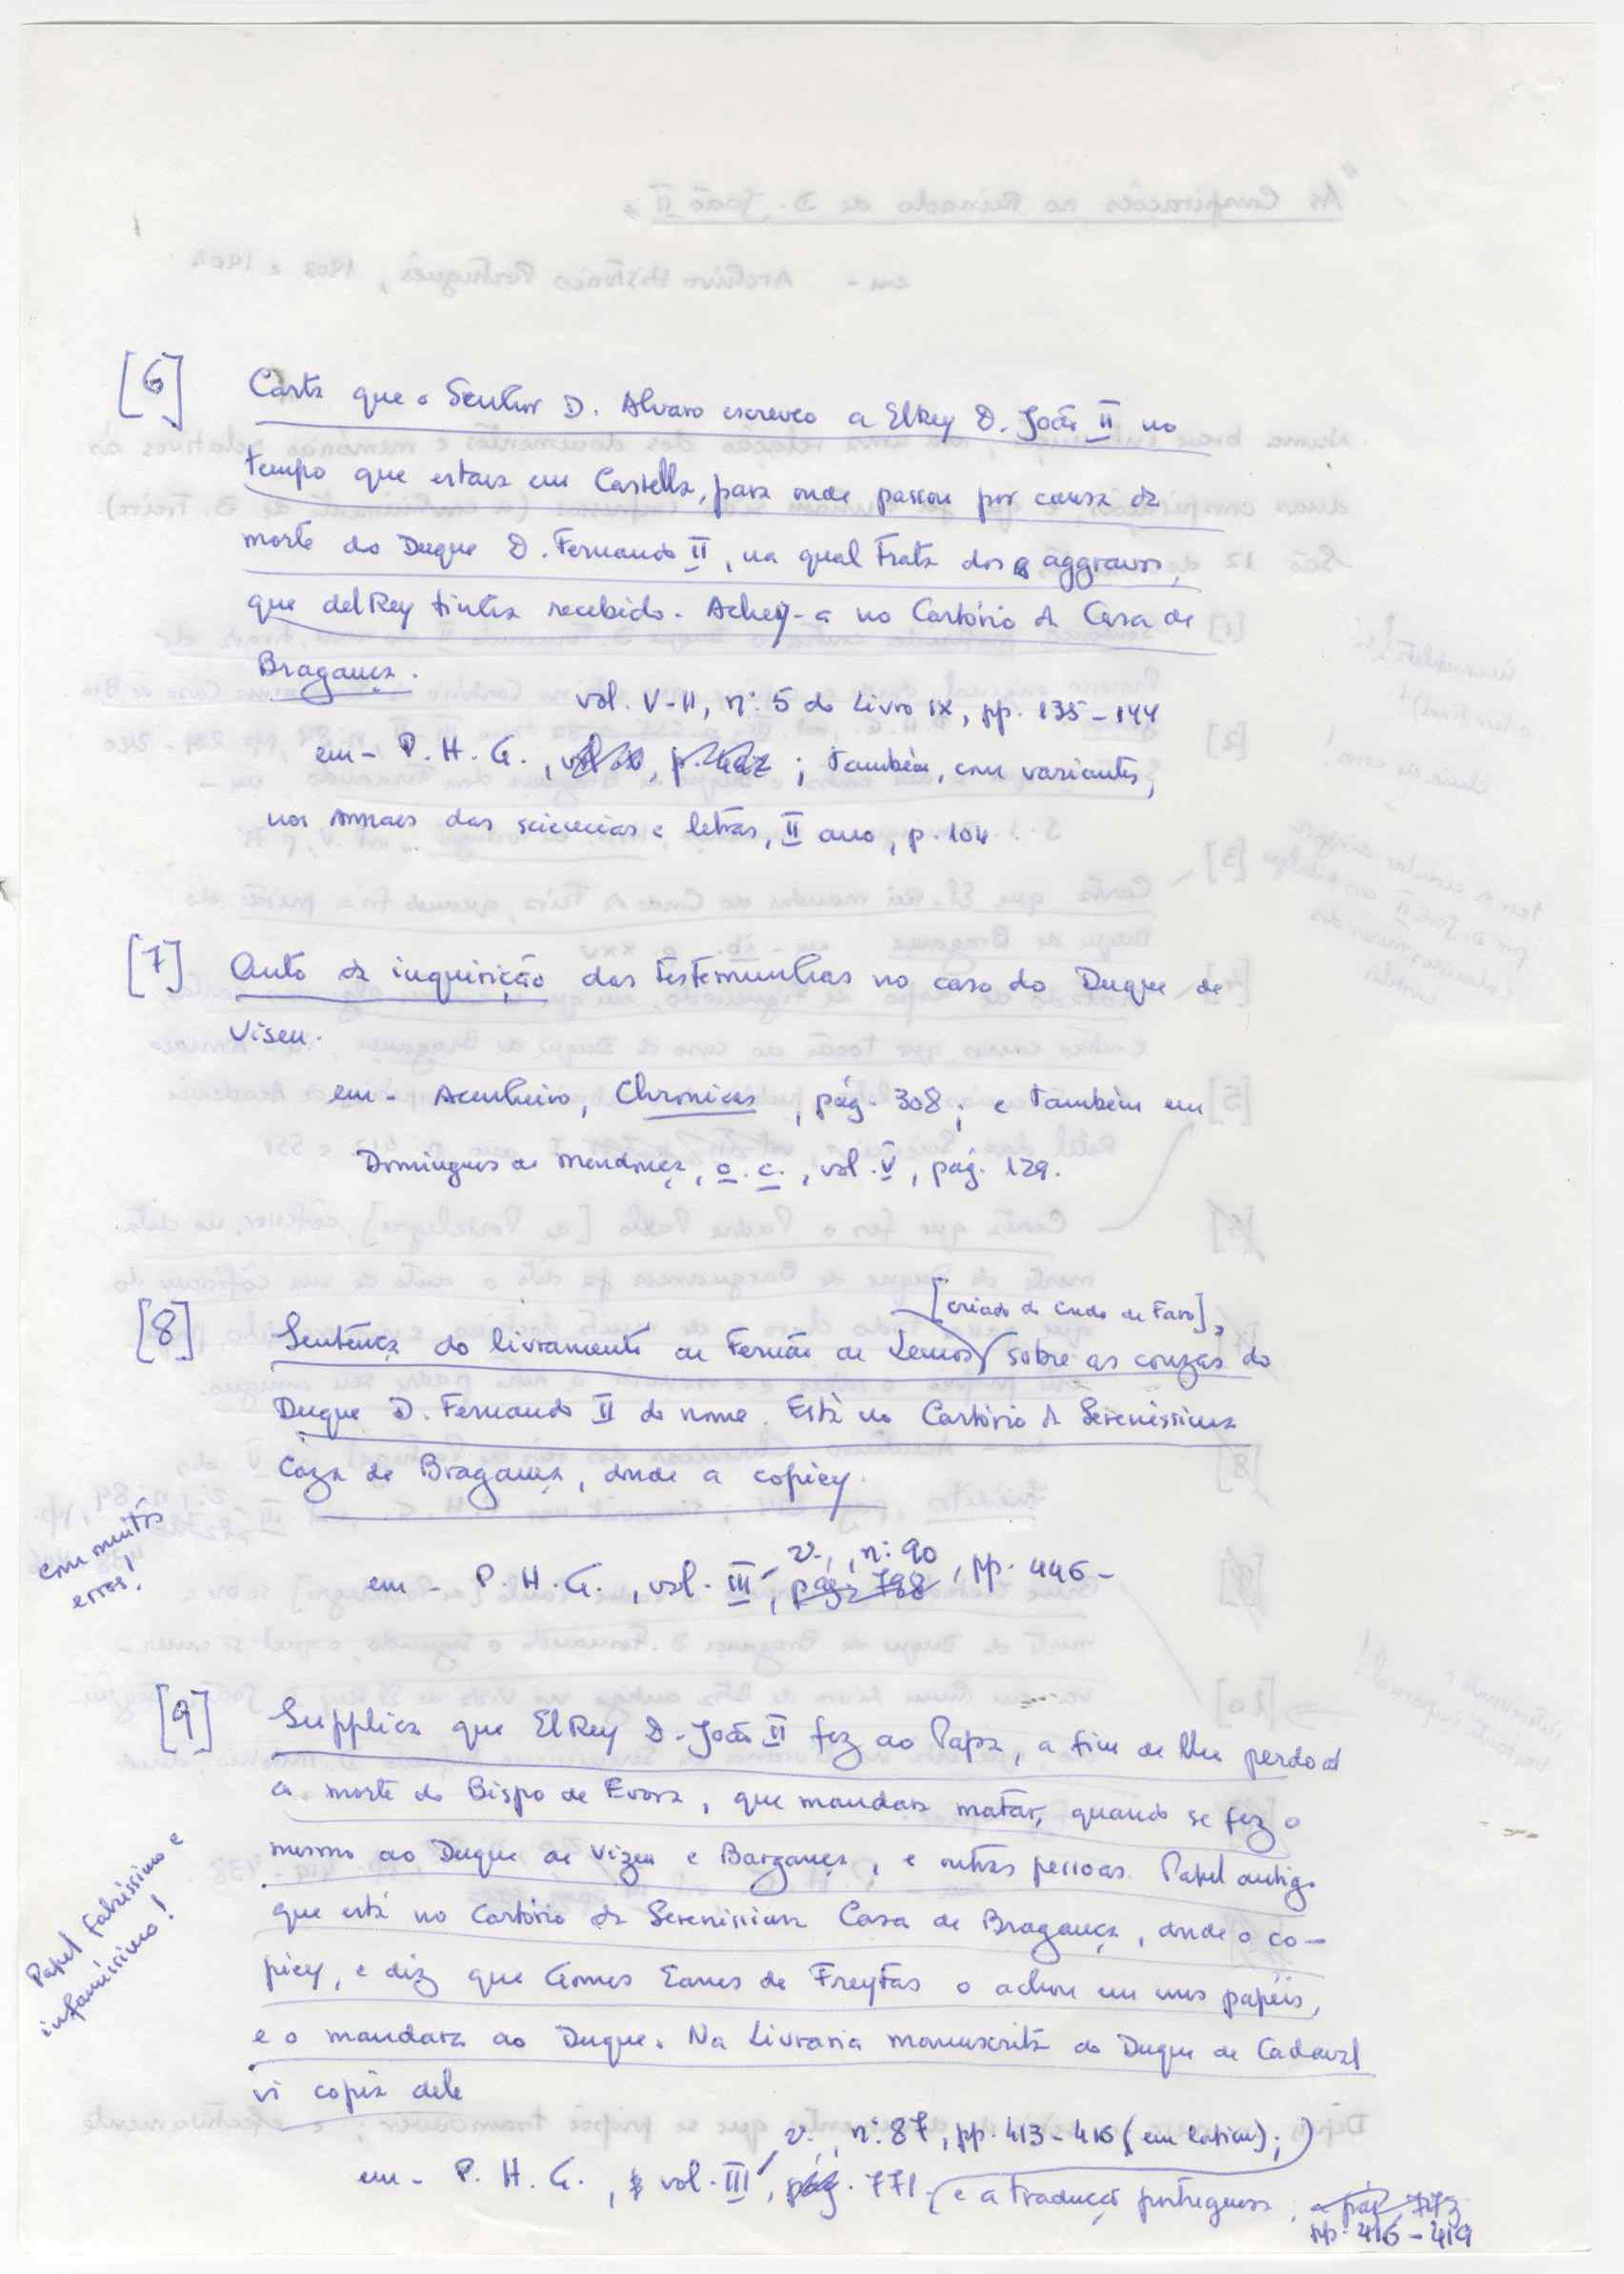 [6] Carta que o Senhor D. Alvaro escreveo a ElRey D. João II no
tempo que estava em Castella, para onde passou por causa da
morte do Duque D. Fernando II, na qual trata dos aggravos,
que delRey tinha recebido. Achey-a no Cartório da Casa de
Bragança.
vol. V-II, nº 5 do Livro IX, pp. 135-144
em - P. H. G., ; também, com variantes,
nos Annaes das sciencias e letras, II ano, p. 104.
[7] Auto da inquirição das testemunhas no caso do Duque de
Viseu.
em - Acenheiro, Chronicas, pág. 308; e também em
Domingues de Mendonça, o. c., vol. V, pág. 129.
[criado do Conde de Faro],
[8] Sentença do livramento de Fernão de Lemos sobre as couzas do
Duque D. Fernando II do nome. Está no Cartório da Sereníssima
Caza de Bragança, donde a copiey.
com muitos
erros!
v., nº 90
em - P. H. G., vol. III, pág. 798, pp. 446-
[9] Supplica que ElRey D. João II fez ao Papa, a fim de lhe perdoar
a morte do Bispo de Evora, que mandara matar, quando se fez o
mesmo ao Duque de Vizeu e Bargança, e outras pessoas. Papel antigo
que está no Cartório da Sereníssima Casa de Bragança, donde o co-
piey, e diz que Gomes Eanes de Freytas o achou em uns papéis,
e o mandara ao Duque. Na Livraria manuscrita do Duque de Cadaval
vi copia dele
Papel falsíssimo e
infamíssimo!
v., nº 87, pp. 413-416 (em latim);
em - P. H. G., vol. III, pág. 771 e a tradução portuguesa, a pág. 773
pp. 416-419